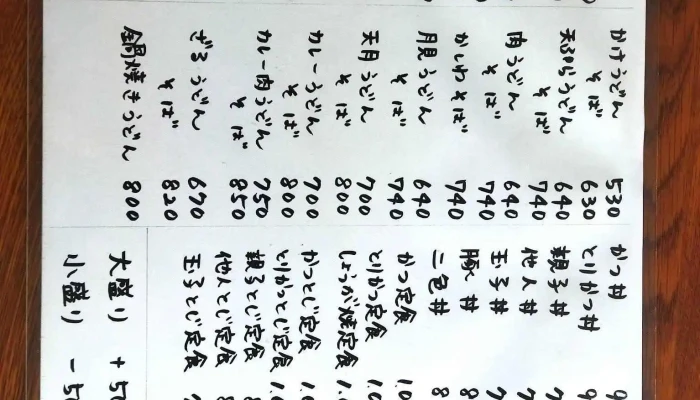 かけうどん 530
そば 630
天ぷらうどん 640
そば 740
肉うどん 640
そば 740
かしわそば 740
月見うどん 640
そば 740
天月うどん 700
そば 800
カレーうどん 700
そば 800
カレー肉うどん 750
そば 850
ざるうどん 670
そば 820
鍋焼きうどん 800
かつ丼
とりかつ丼
親子丼
他人丼
玉子丼
豚丼
二色丼
かつ定食
とりかつ定食
しょうが焼定食
かつとじ定食
とりかつとじ定食
親子とじ定食
他人とじ定食
玉子とじ定食
大盛り
小盛り